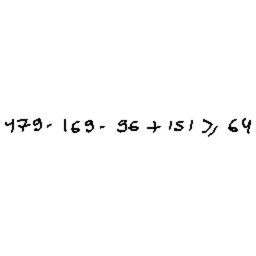 479 - 169 - 96 + 151 ⩾ 64